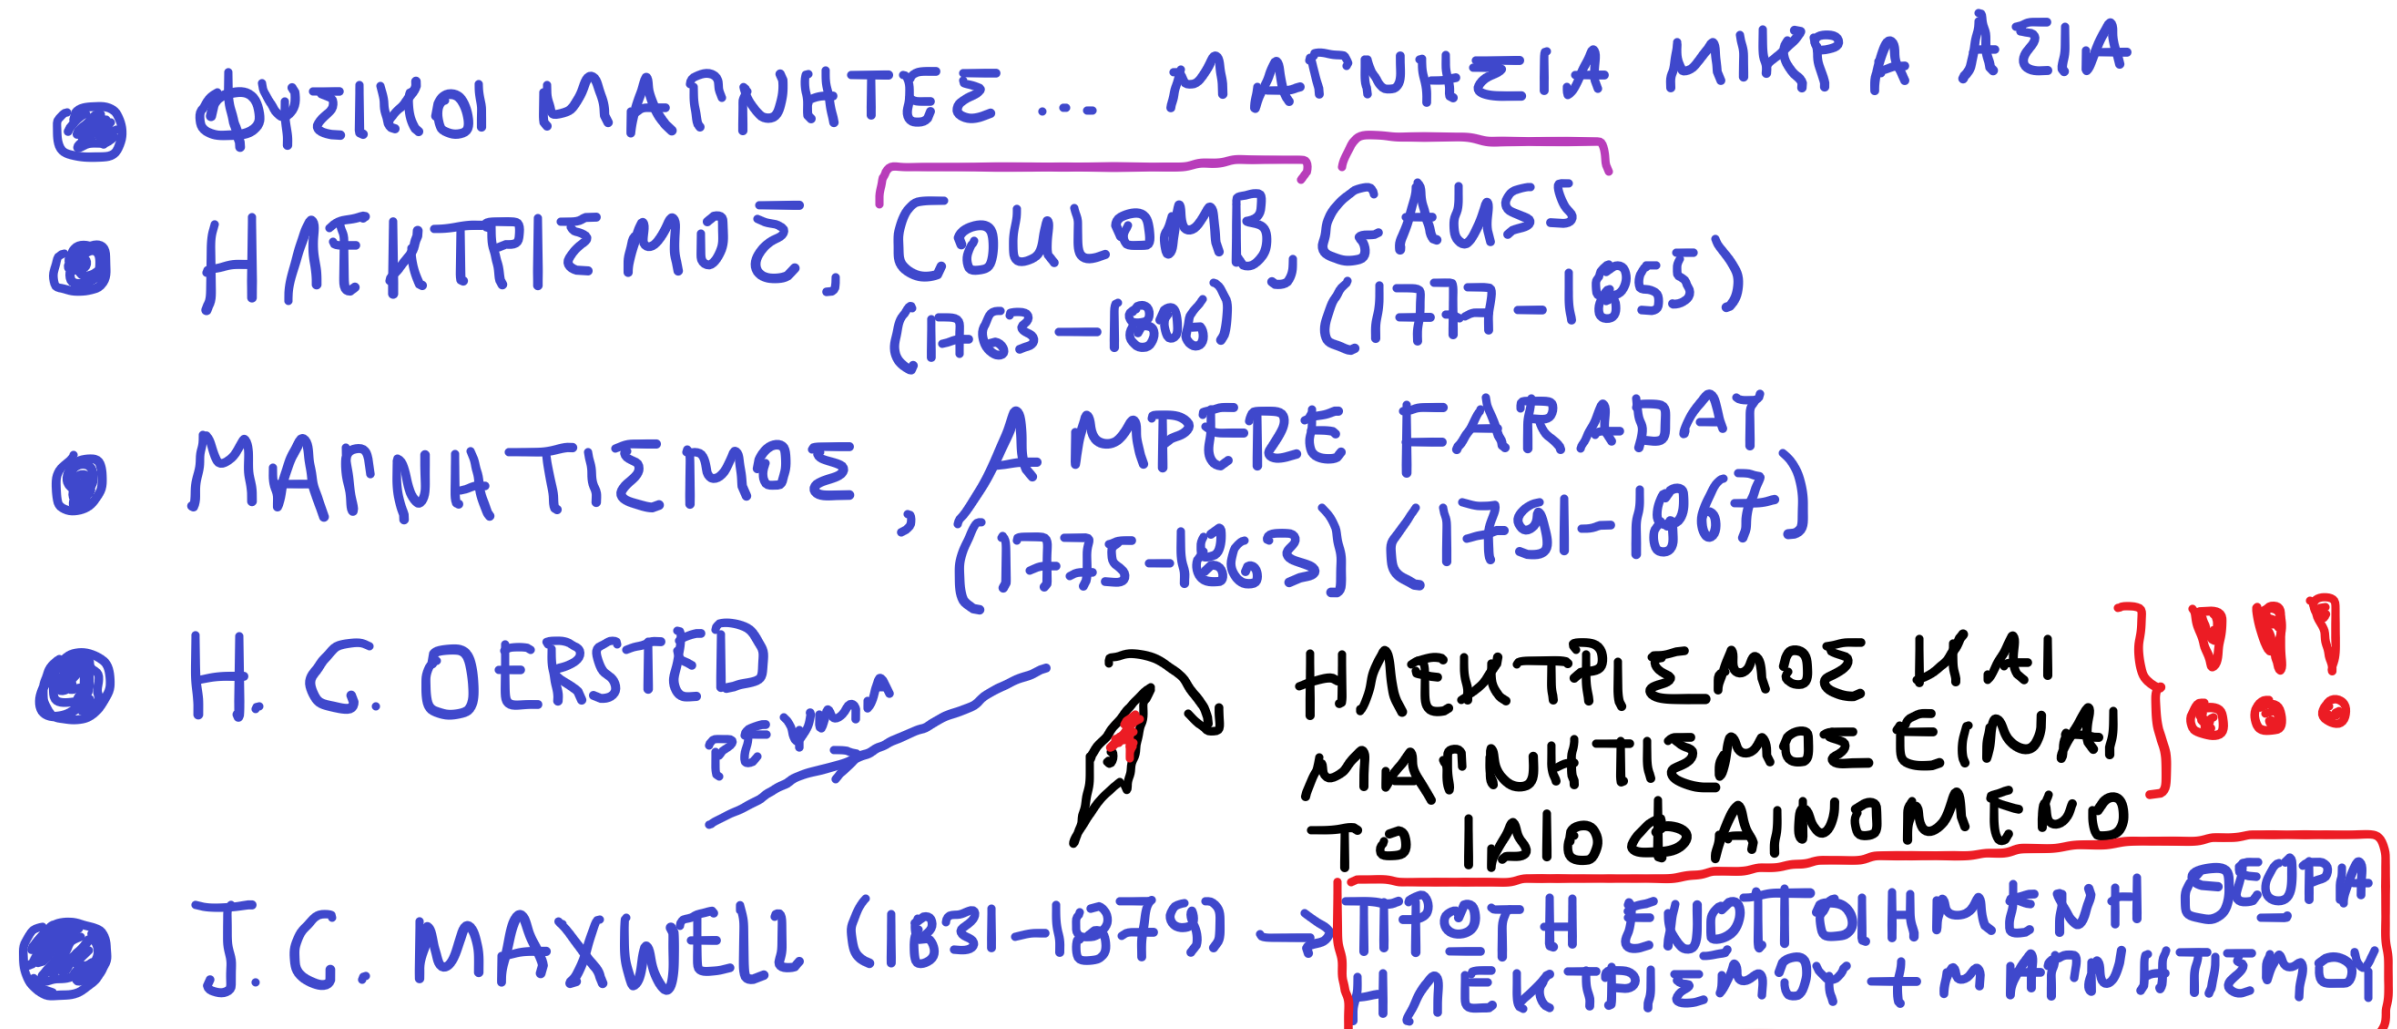 ΦΥΣΙΚΟΙ ΜΑΓΝΗΤΕΣ ... ΜΑΓΝΗΣΙΑ ΜΙΚΡΑ ΑΣΙΑ
ΗΛΕΚΤΡΙΣΜΟΣ, COULOMB, GAUSS
(1763-1806) (1777-1855)
ΜΑΓΝΗΤΙΣΜΟΣ, AMPERE FARADAY
(1775-1863) (1791-1867)
H. C. OERSTED
ΡΕΥΜΑ
ΗΛΕΚΤΡΙΣΜΟΣ ΚΑΙ
ΜΑΓΝΗΤΙΣΜΟΣ ΕΙΝΑΙ
ΤΟ ΙΔΙΟ ΦΑΙΝΟΜΕΝΟ
!!!
J. C. MAXWELL (1831-1879) → ΠΡΩΤΗ ΕΝΩΠΟΙΗΜΕΝΗ ΘΕΩΡΙΑ
ΗΛΕΚΤΡΙΣΜΟΥ + ΜΑΓΝΗΤΙΣΜΟΥ